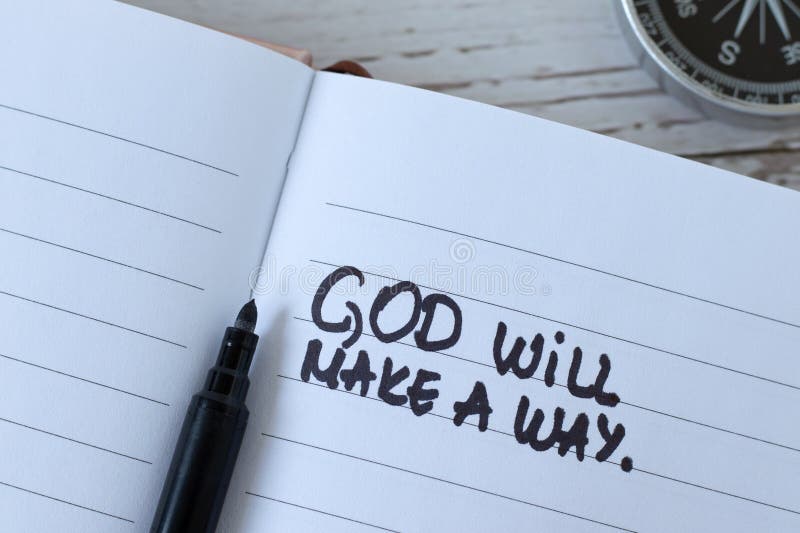 GOD WiLL
MAKE A WAY.
S
dreamstime